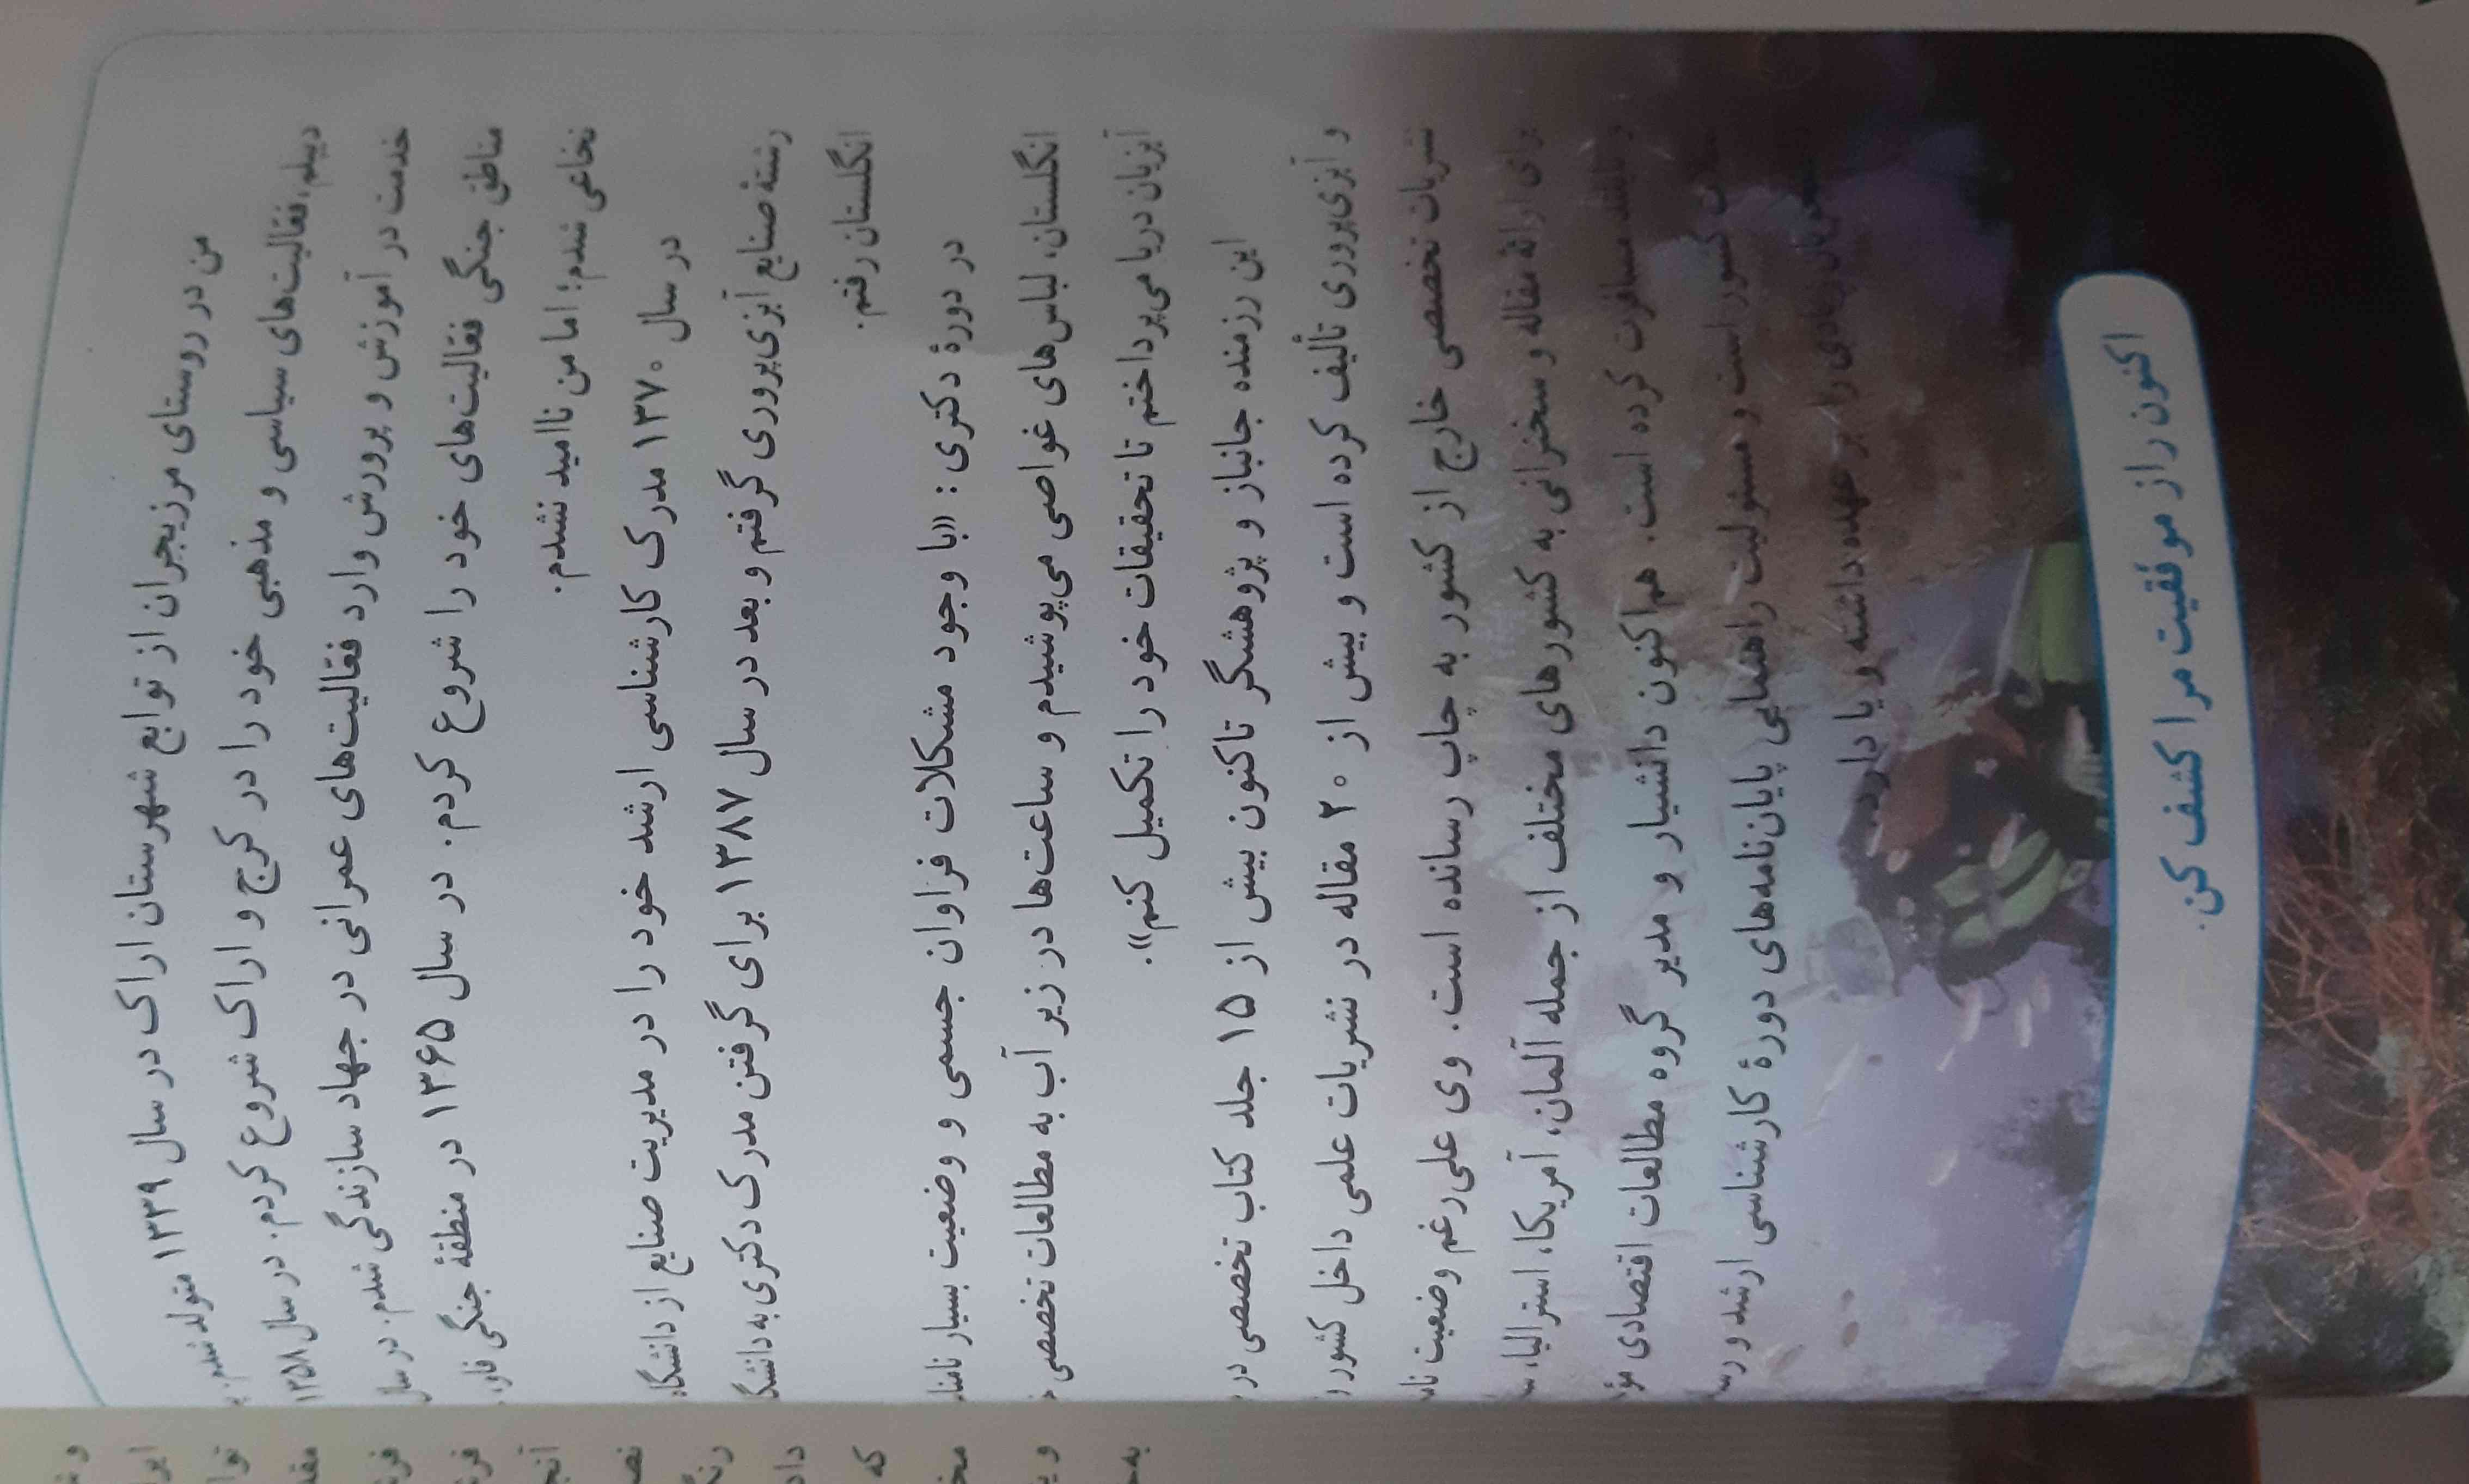 من در روستای مرزیجران از توابع شهرستان اراک در سال ۱۳۳۹ متولد شدم.
دیپلم، فعّالیت‌های سیاسی و مذهبی خود را در کرج و اراک شروع کردم. در سال ۱۳۵۸
خدمت در آموزش و پرورش وارد فعّالیت‌های عمرانی در جهاد سازندگی شدم. در
مناطق جنگی فعّالیت‌های خود را شروع کردم. در سال ۱۳۶۵ در منطقهٔ جنگی
نخاعی شدم؛ اما من ناامید نشدم.
در سال ۱۳۷۰ مدرک کارشناسی ارشد خود را در مدیریت صنایع از
رشتهٔ صنایع آبزی‌پروری گرفتم و بعد در سال ۱۳۸۷ برای گرفتن مدرک دکتری به
انگلستان رفتم.
در دورهٔ دکتری: «با وجود مشکلات فراوان جسمی و وضعیت بسیار
انگلستان، لباس‌های غواصی می‌پوشیدم و ساعت‌ها در زیر آب به مطالعات تخصصی
آبزیان دریا می‌پرداختم تا تحقیقات خود را تکمیل کنم».
این رزمنده جانباز و پژوهشگر تاکنون بیش از ۱۵ جلد کتاب تخصصی در
و آبزی‌پروری تألیف کرده است و بیش از ۲۰ مقاله در نشریات علمی داخل کشور
نشریات تخصصی خارج از کشور به چاپ رسانده است. وی علی‌رغم وضعیت
برای ارائهٔ مقاله و سخنرانی به کشورهای مختلف از جمله آلمان، آمریکا، استرالیا،
و تایلند مسافرت کرده است. هم‌اکنون دانشیار و مدیر گروه مطالعات اقتصادی
کشور است و مسئولیت راهنمایی پایان‌نامه‌های دورهٔ کارشناسی ارشد و
زیادی را بر عهده داشته و یا دارد.
اکنون راز موفّقیت مرا کشف کن.